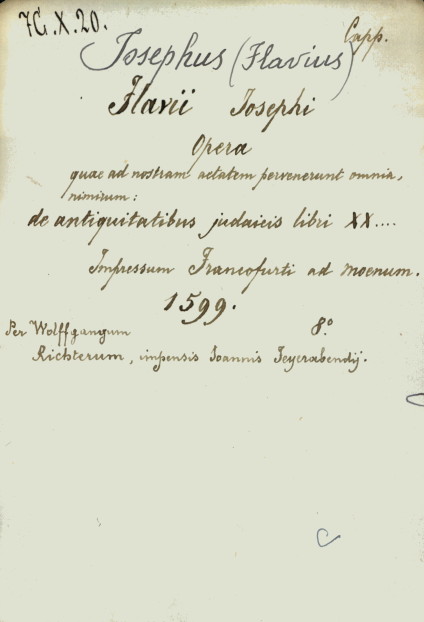 7G.X.20.
Capp.
Josephus (Flavius)
Flavii Josephi
Opera
quae ad nostram aetatem pervenerunt omnia,
nimirum:
de antiquitatibus judaicis libri XX....
Impressum Francofurti ad moenum.
1599.
Per Wolffgangum 8.º
Richterum, impensis Joannis Feyerabendij.